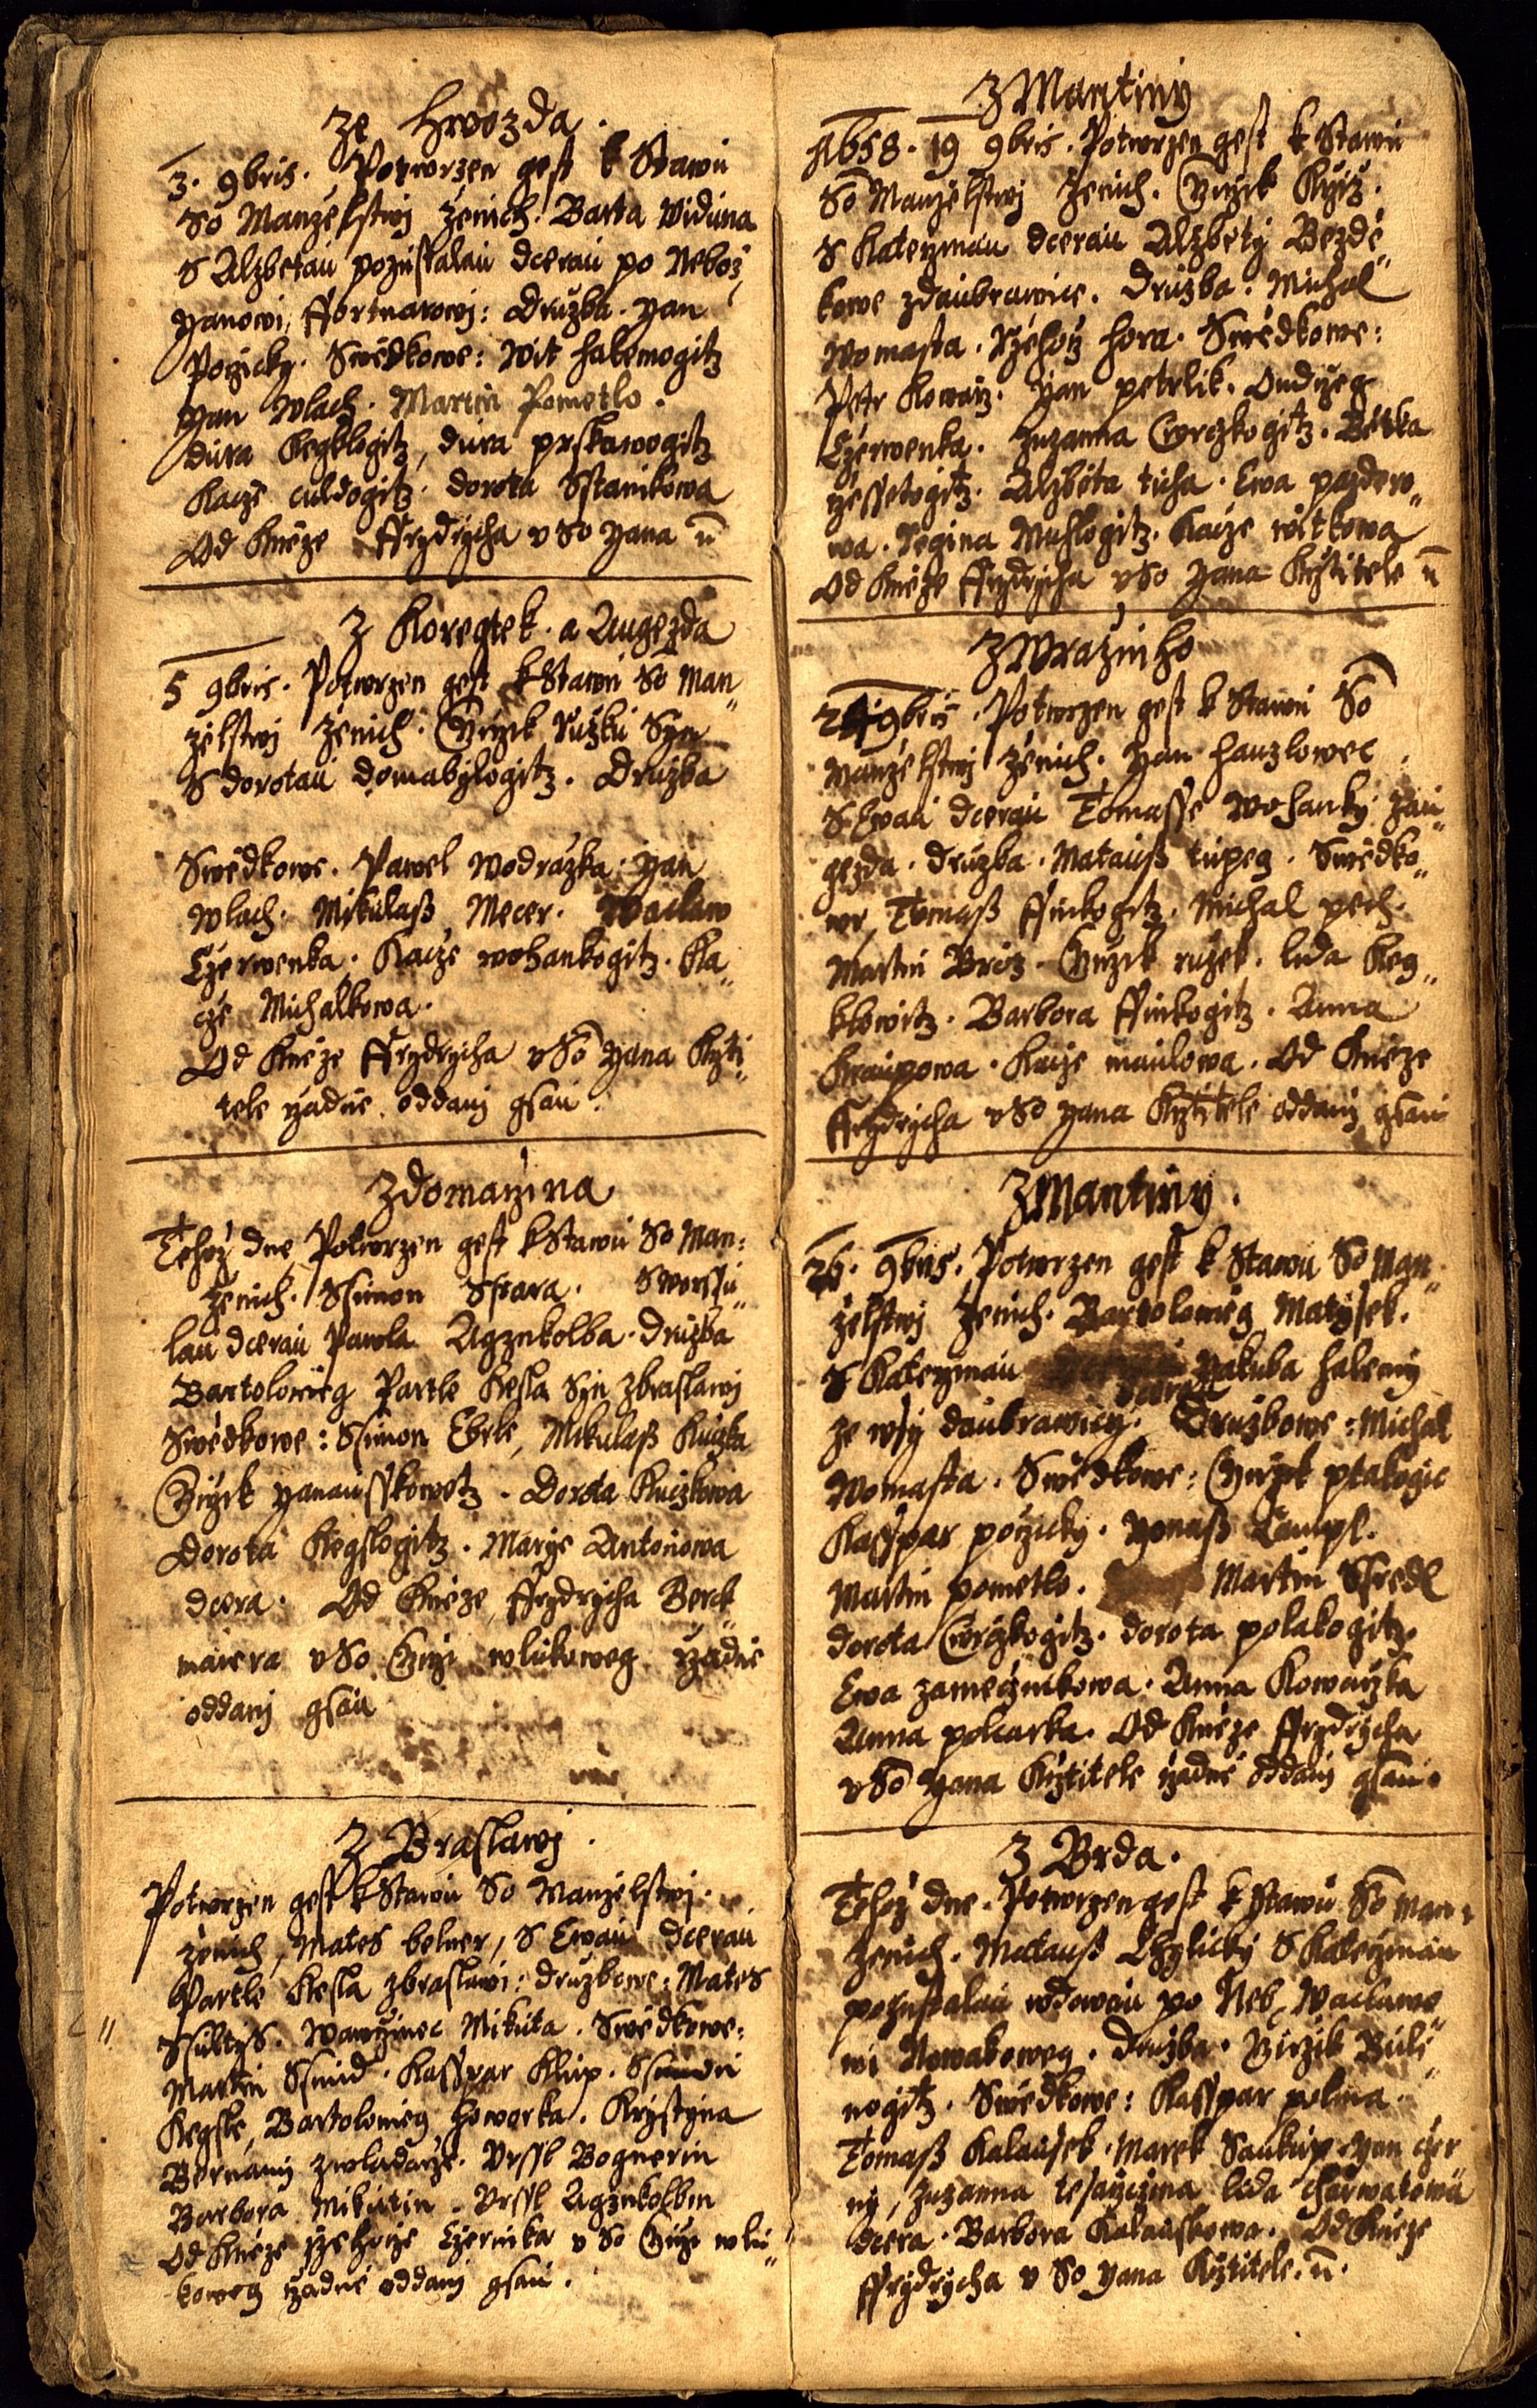 ze Hwozda.
3. 9bris. Potwrzen gest k Stawu
So Manzelstwj Zenich. Barta Widuna
S Alzbetau pozustalau dcerau po Neboz
Yanowi, Ffortnarowj: Druzba. Yan
Pozicky. Swědkowe: Wit halemogitz
Yan Wlach. Martin Pometlo.
dura Kegklogitz, dura prskawogitz
Kacze culdogitz. dorota Sstanikowa
Od Kněze Ffrydrycha v So Yana ū
Z Koregtek. a Augezda
5 9bris. Potwrzen gest k Stawu So Man„
zelstwj Zenich. Girzik Ružků Syn
S dorotau domabylogitz. Družba
Swědkowe. Pawel Wodrazka. Yan
Wlach. Mikulaß Mecer. Waclaw
Czerwenka. Kacze wohankogitz. Ka„
cze Michalkowa.
Od Kněze Ffrydrycha v So Yana Krzti„
tele rzadně oddanj gsau.
Z domazina
Tehoz dne, Potwrzen gest k Stawu So Man:
Zenich. Ssimon Sstara. S Worssu„
lau dcerau Pawla Agznkolba. Druzba
Bartolomieg Partle Kesla Syn zbraslawj
Swědkowe: Ssimon Eberle, Mikulaß Kuczka
Girzik Yanausskowetz. Dorota Kuczkowa
Dorota Kegslogitz. Marye Antoniowa
dcera. Od Kněze Ffrydrycha Berck„
maiera v So Girzi wlukoweg rzadně
oddanj gsau
Z Braslawj.
Potwrzen gest k Stawu So Manzelstwj.
Zenich, Mates belner, S Ewau dcerau
Partle Kesla zbraslawi: druzbowe: Mates
Ssultys. Wawrzinec Mikuta. Swědkowe:
Martin Ssmid. Kasspar Klup. Ssimon
Kegsle, Bartolomieg howorka. Krystyna
Bernanj zwladarze. Urssl Bognerin
Barbora Mikutin. Urssl Agznkolbin
Od Kněze rzehorze Czernika v So Girzi wlu„
koweg rzadně oddanj gsau.
Z Mantiny
A658. 19 9bris. Potwrzen gest k Stawu
So Manzelstwj Zenich. Girzik Kryz.
S Katerzinau dcerau Alzbety Bezdě„
kowe zdaubrawice. Druzba. Michal
Womasta. Rzehorz hora. Swědkowe:
Petr Kowarz. Yan petrlik. Ondrzeg
Czerwenka. Zuzanna Cwrczkogitz. Bětka
rzessetogitz. Alzběta ticha. Ewa pazdero„
wa. Regina Muchlogitz. Kacze witkowa
Od Kněze Ffrydrycha v So Yana Krztitele ū
Z Wrazniho
24 9bris. Potwrzen gest k Stawu So
Manzelstwj Zenich. Yan hanzlowec
S Ewau dcerau Tomasse Wohanky zau„
gezda. Druzba. Matauß tupeg. Swědko„
we, Tomaß Ffinkogitz. Michal pech.
Martin Briz. Girzik ruzek. lida Keg„
klowitz. Barbora Ffinkogitz. Anna
Kraupowa. Kacze maulowa. Od Kněze
Ffrydrycha v So Yana Krztitele oddanj gsau
Z Mantiny.
26. 9bris. Potwrzen gest k Stawu So Man„
zelstwj Zenich. Bartolomieg Matysek.
S Katerzinau dcerau Yakuba halemy
ze wsy daubrawicy. Druzbowe: Michal
Womasta. Swědkowe: Girzik ptakogic
Kasspar porzicky. Yonaß Lampl.
Martin pometlo. Martin Ssredl
dorota Cwrczkogitz. dorota polakogitz.
Ewa zamecznikowa. Anna Kowarzka
Anna polcarka. Od Kněze Ffrydrycha
v So Yana Krztitele rzadně oddanj gsau.
Z Brda.
Tehoz dne. Potwrzen gest k Stawu So Man:
Zenich. Matauß Chylicky S Katerzinau
pozustalau wdowau po Neb, Waclawo„
wi Nowakoweg. Druzba. Girzik Buli„
nogitz. Swědkowe: Kasspar polina.
Tomaß Kalausek. Marek Saukup. Yan czer
ny, Zuzanna tesarzczina lida Charwatowa
dcera. Barbora Kalauskowa. Od Kněze
Ffrydrycha v So Yana Krztitele. ū.